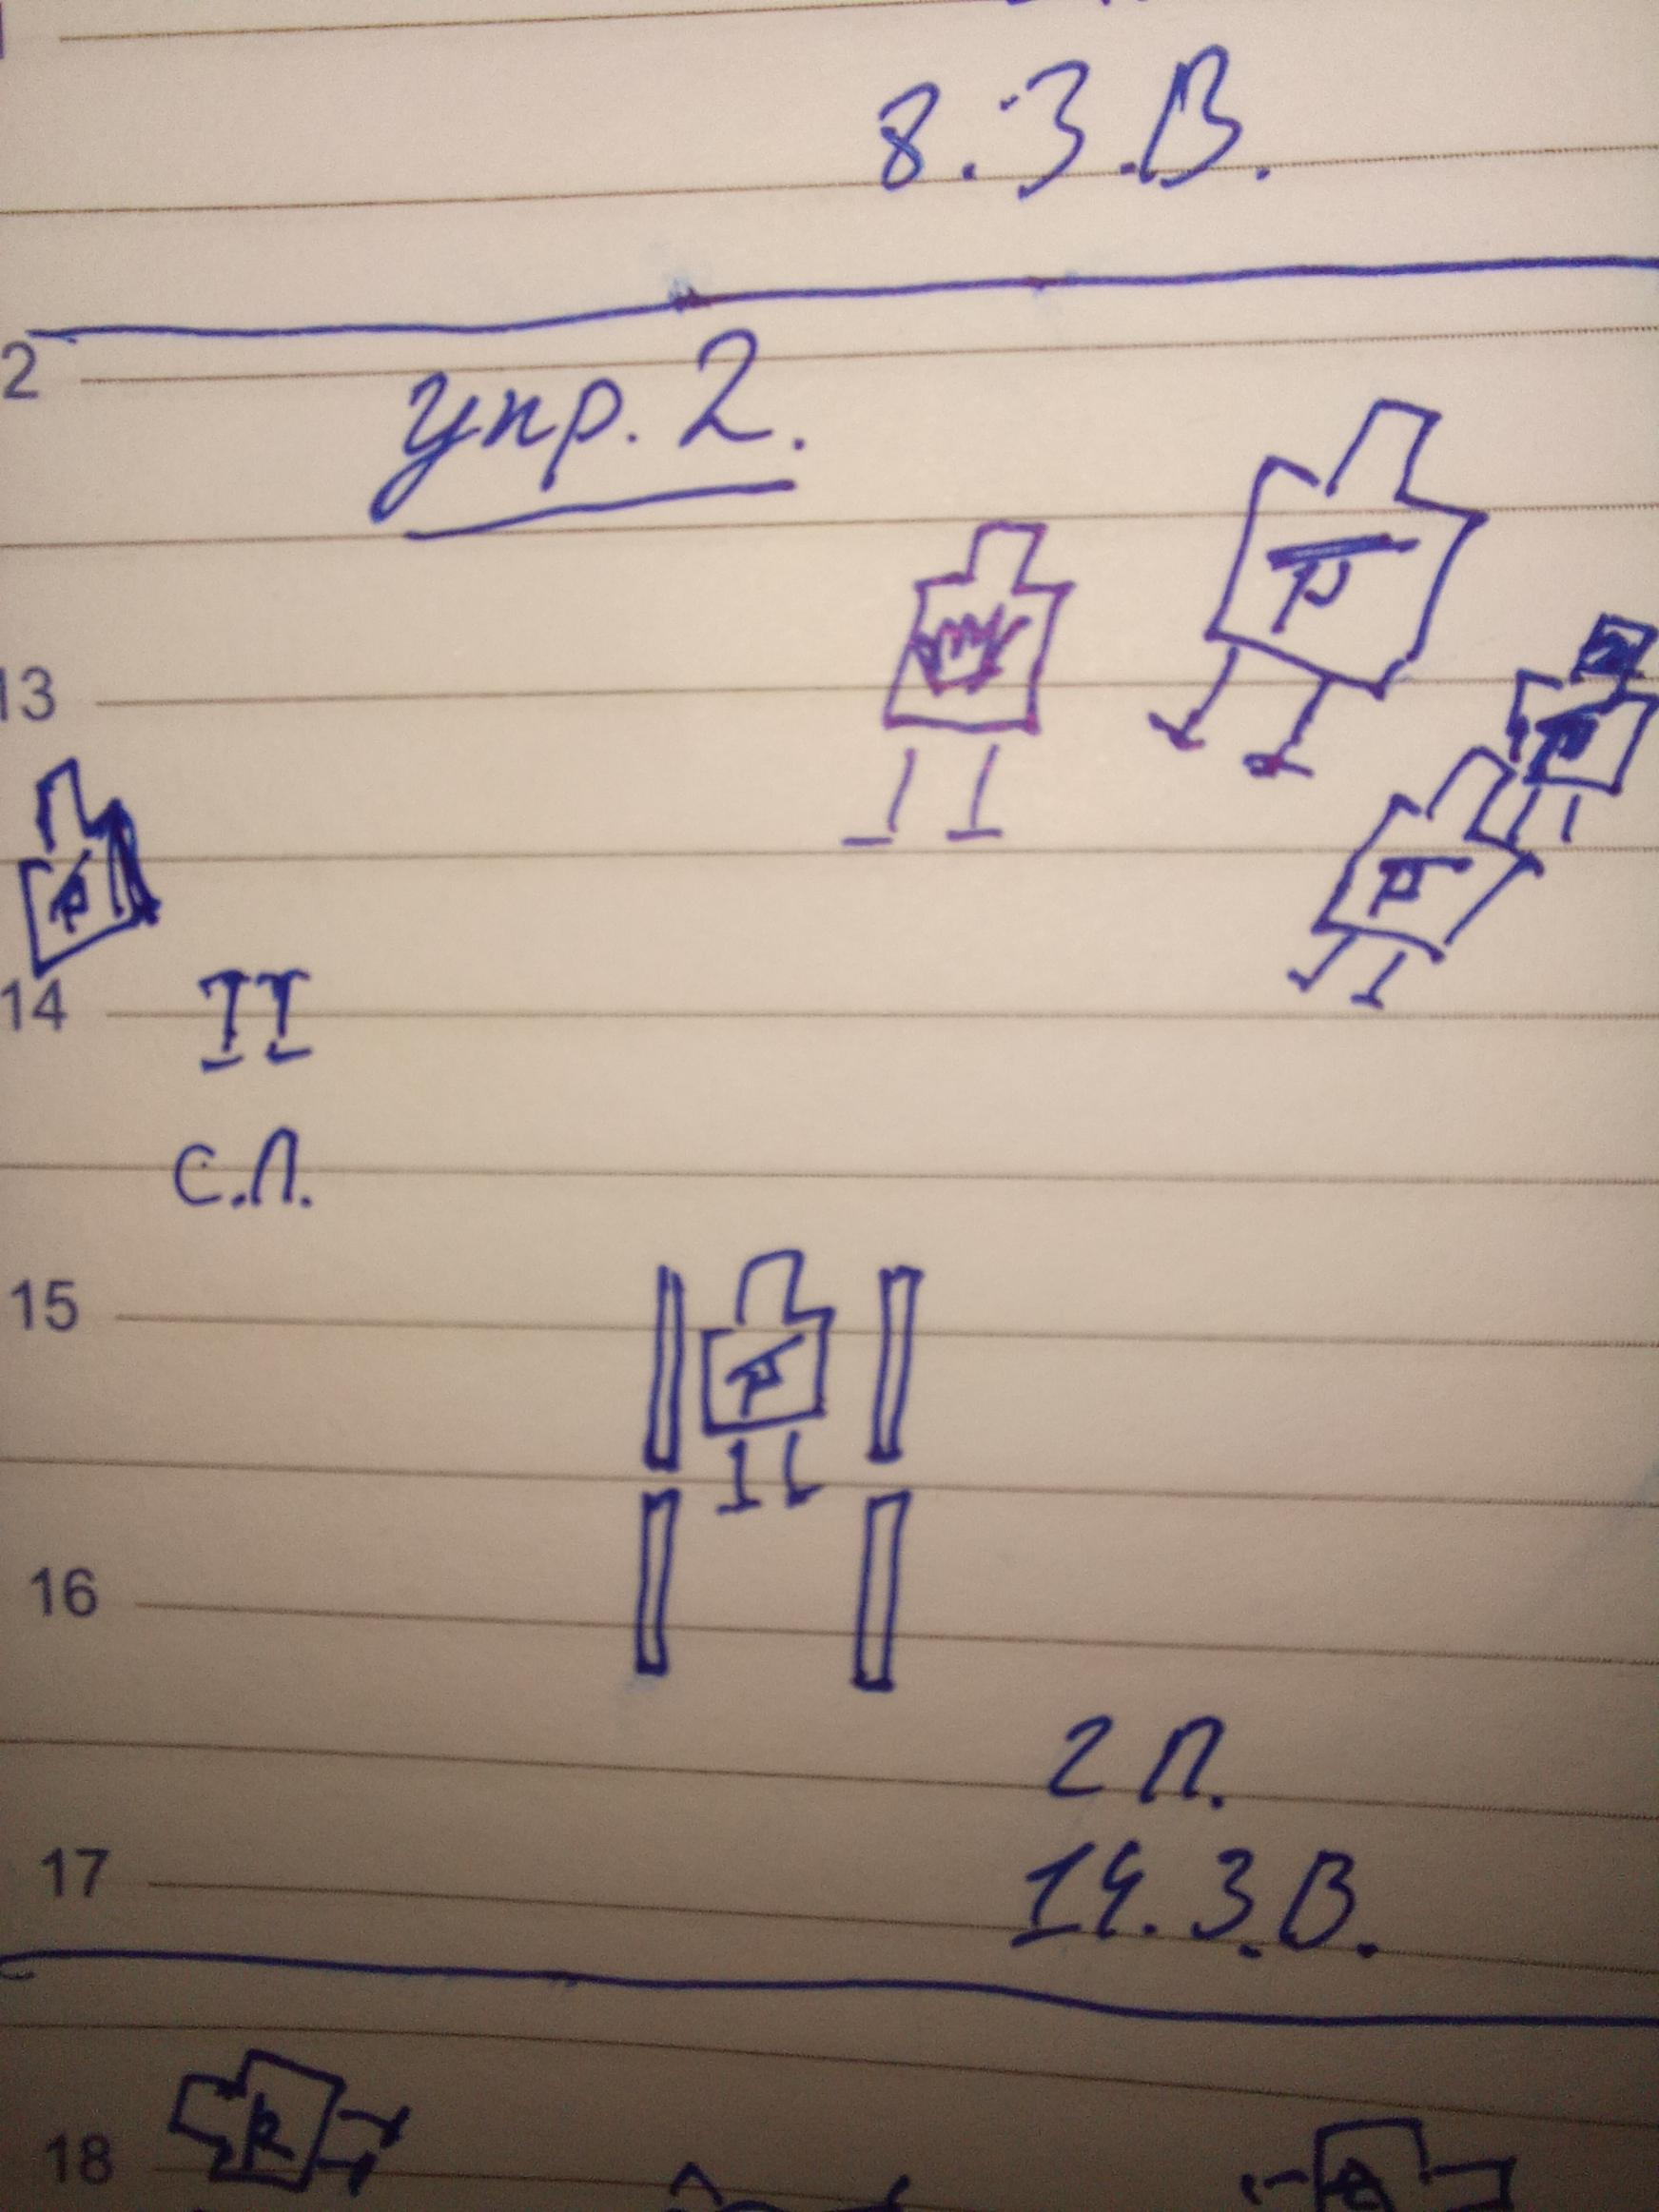 8.З.В.
2
упр. 2.
13
14
с.п.
15
16
2 п.
17
14.З.В.
18